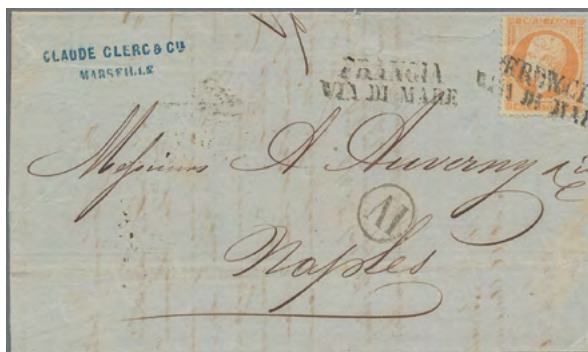 CLAUDE CLERC & Cie
MARSEILLE
FRANCIA
VIA DI MARE
FRANCI
VIA DI MA
Messieurs A. Auverny & Cie
Naples